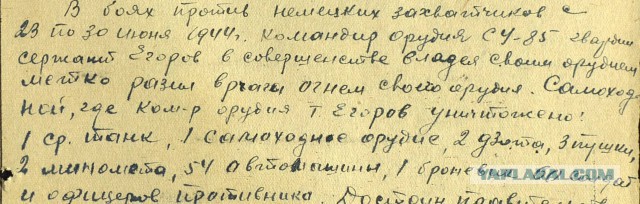 В боях против немецких захватчиков с
23 по 30 июня 1944г. командир орудия СУ-85 гвардии
сержант Егоров в совершенстве владея своим орудием
метко разил врага огнем своего орудия. Самоход-
ной, где ком-р орудия т. Егоров уничтожено:
1 ср. танк, 1 самоходное орудие, 2 дзота, 3 пушки,
2 миномета, 54 автомашины, 1
и офицеров противника. Достоин
YAPLAKAL.COM